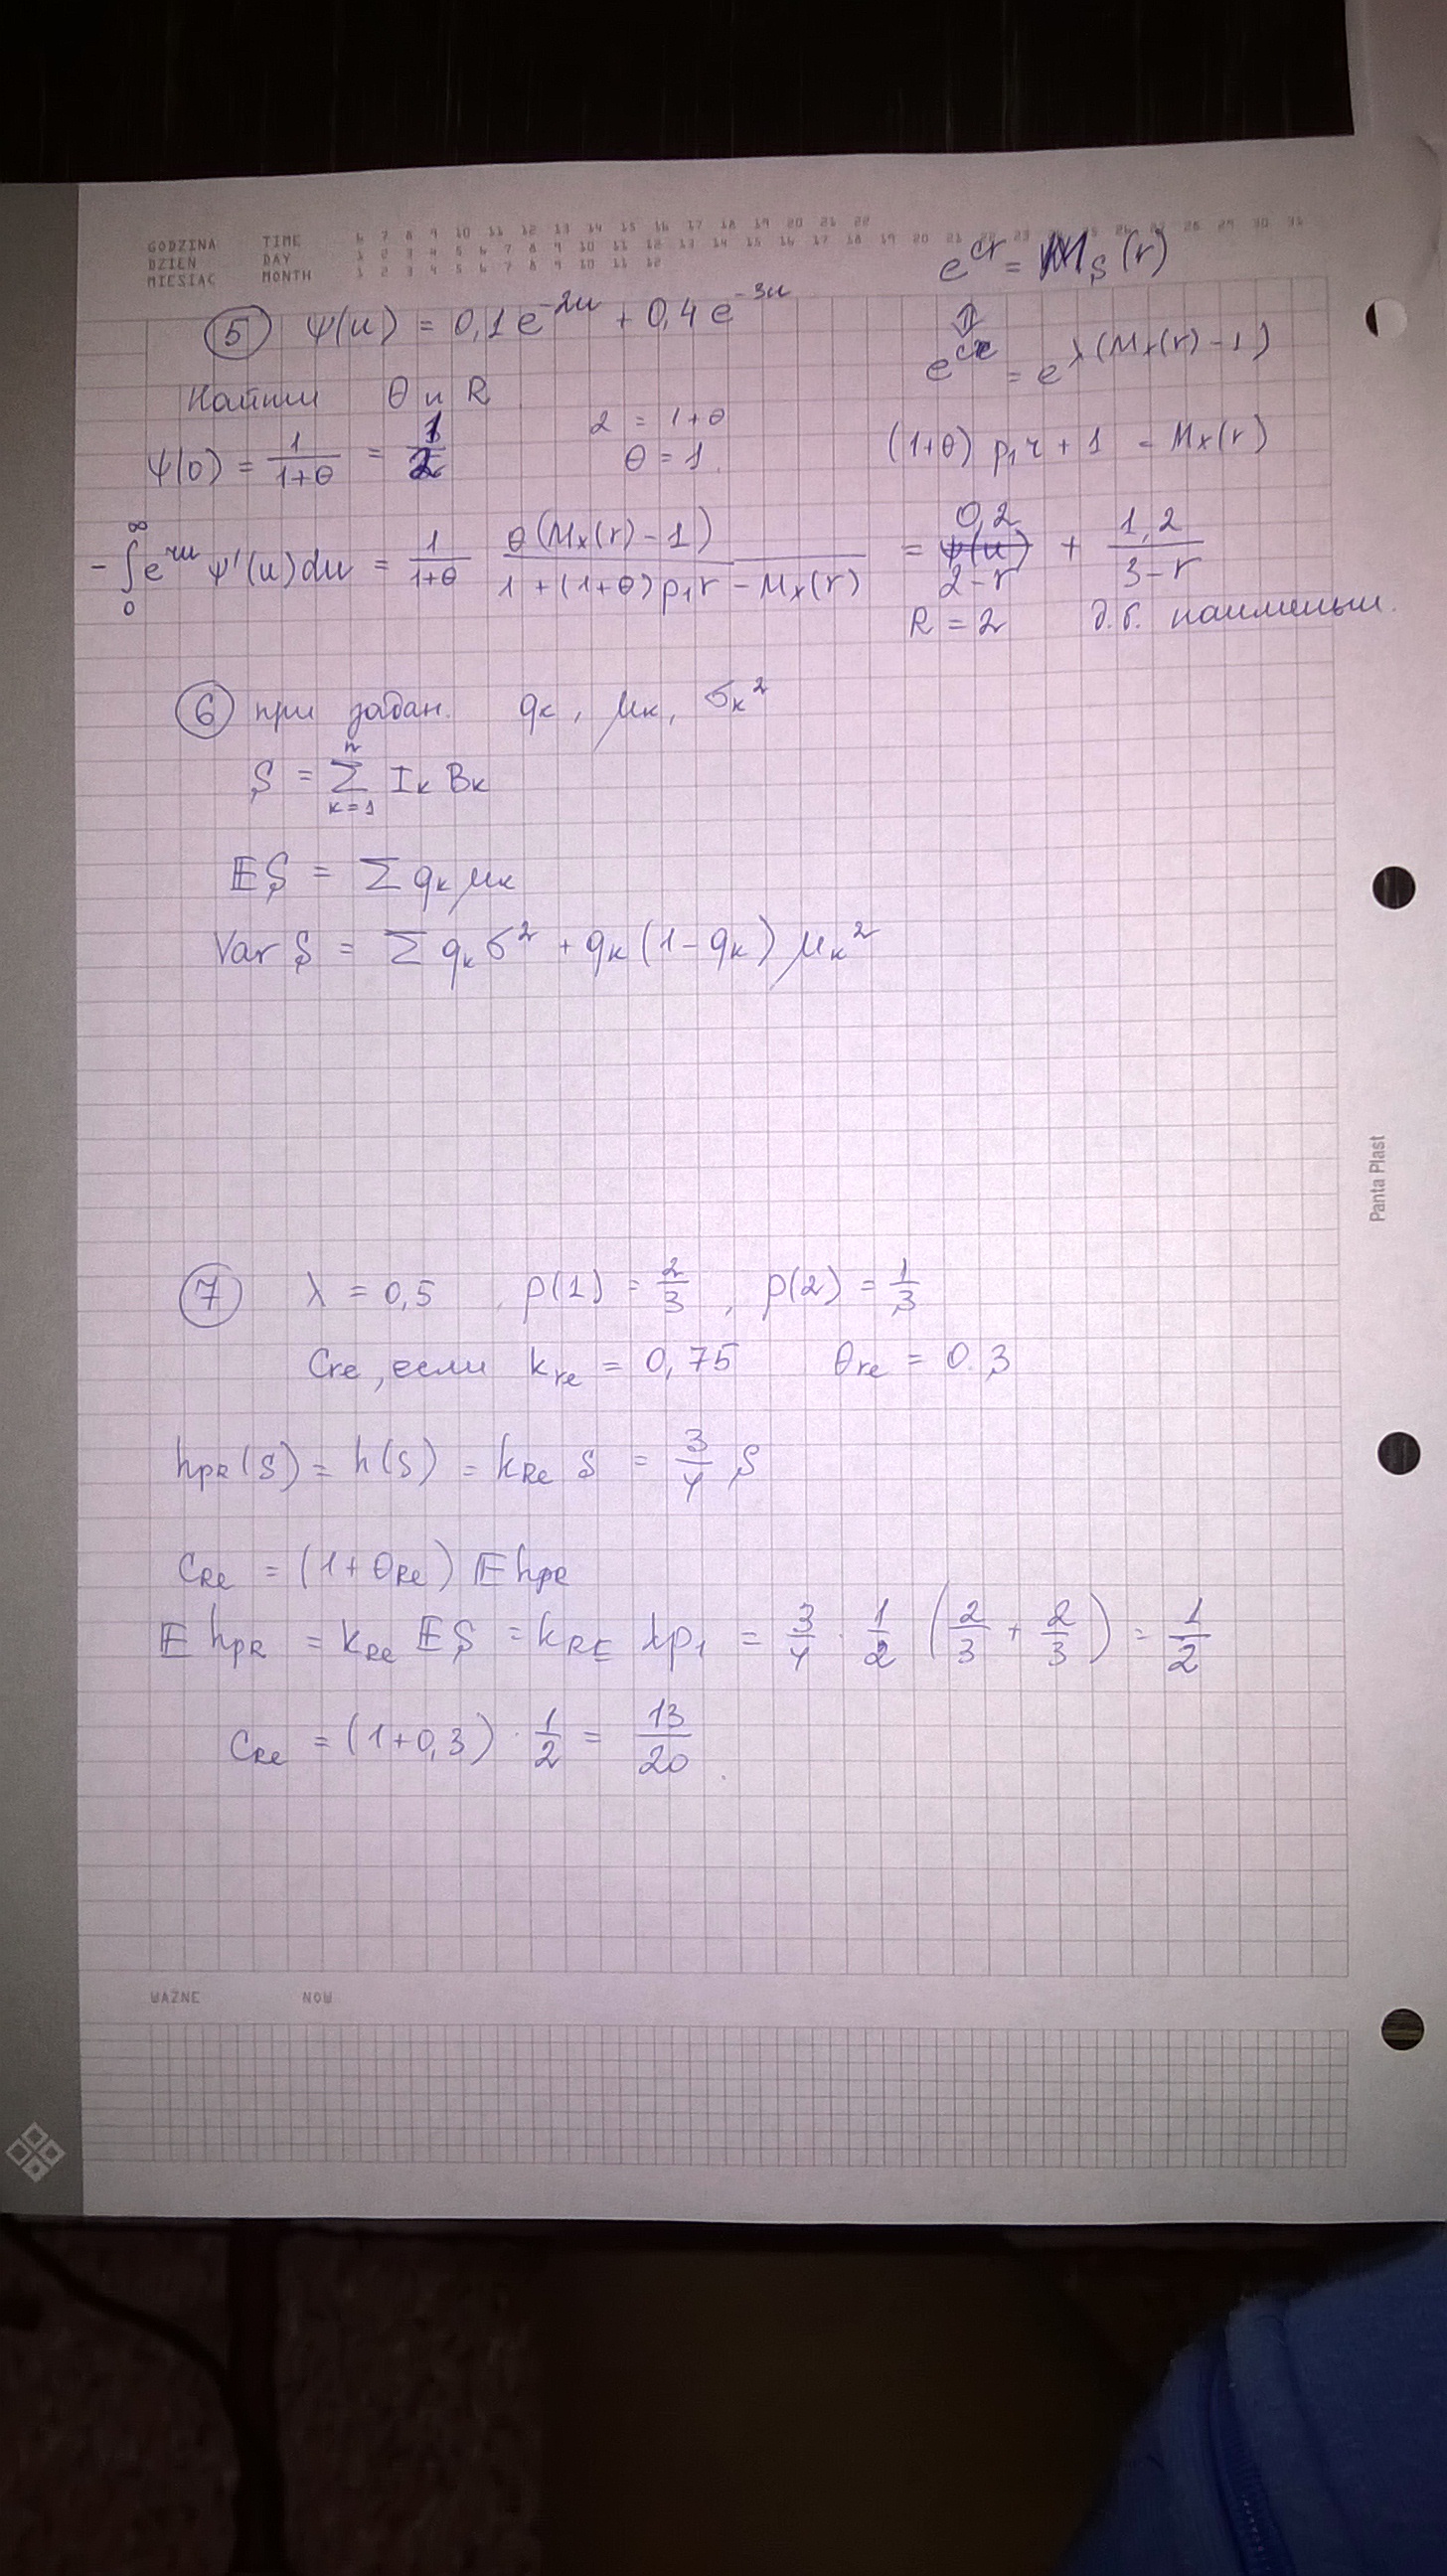 GODZINA TIME 6 7 8 9 10 11 12 13 14 15 16 17 18 19 20 21 22
DZIEŃ DAY 1 2 3 4 5 6 7 8 9 10 11 12 13 14 15 16 17 18 19 20 21 22 23 24 25 26 27 28 29 30 31
MIESIĄC MONTH 1 2 3 4 5 6 7 8 9 10 11 12
e^{cr} = M_S(r)
⑤ ψ(u) = 0,1e^{-2u} + 0,4e^{-3u}
⇕
e^{cr} = e^{λ(M_x(r)-1)}
Найти θ и R
ψ(0) = 1/(1+θ) = 1/2
2 = 1+θ
θ = 1
(1+θ) p₁r + 1 = M_x(r)
-∫₀^∞ e^{ru} ψ'(u)du = 1/(1+θ) θ(M_x(r)-1)/(1+(1+θ)p₁r - M_x(r)) = 0,2/(2-r) + 1,2/(3-r)
R = 2 д.б. наименьш.
⑥ при задан. q_k, μ_k, σ_k²
S = Σ_{k=1}^{n} I_k B_k
𝔼S = Σ q_k μ_k
Var S = Σ q_k σ² + q_k(1-q_k) μ_k²
⑦ λ = 0,5, p(1) = 2/3, p(2) = 1/3
C_re, если k_re = 0,75 θ_re = 0.3
h_PR(S) = h(S) = k_Re S = 3/4 S
C_Re = (1+θ_Re) 𝔼h_PR
𝔼 h_PR = k_Re 𝔼S = k_RE λp₁ = 3/4 · 1/2 (2/3 + 2/3) = 1/2
C_Re = (1+0,3) · 1/2 = 13/20
WAŻNE NOW
Panta Plast